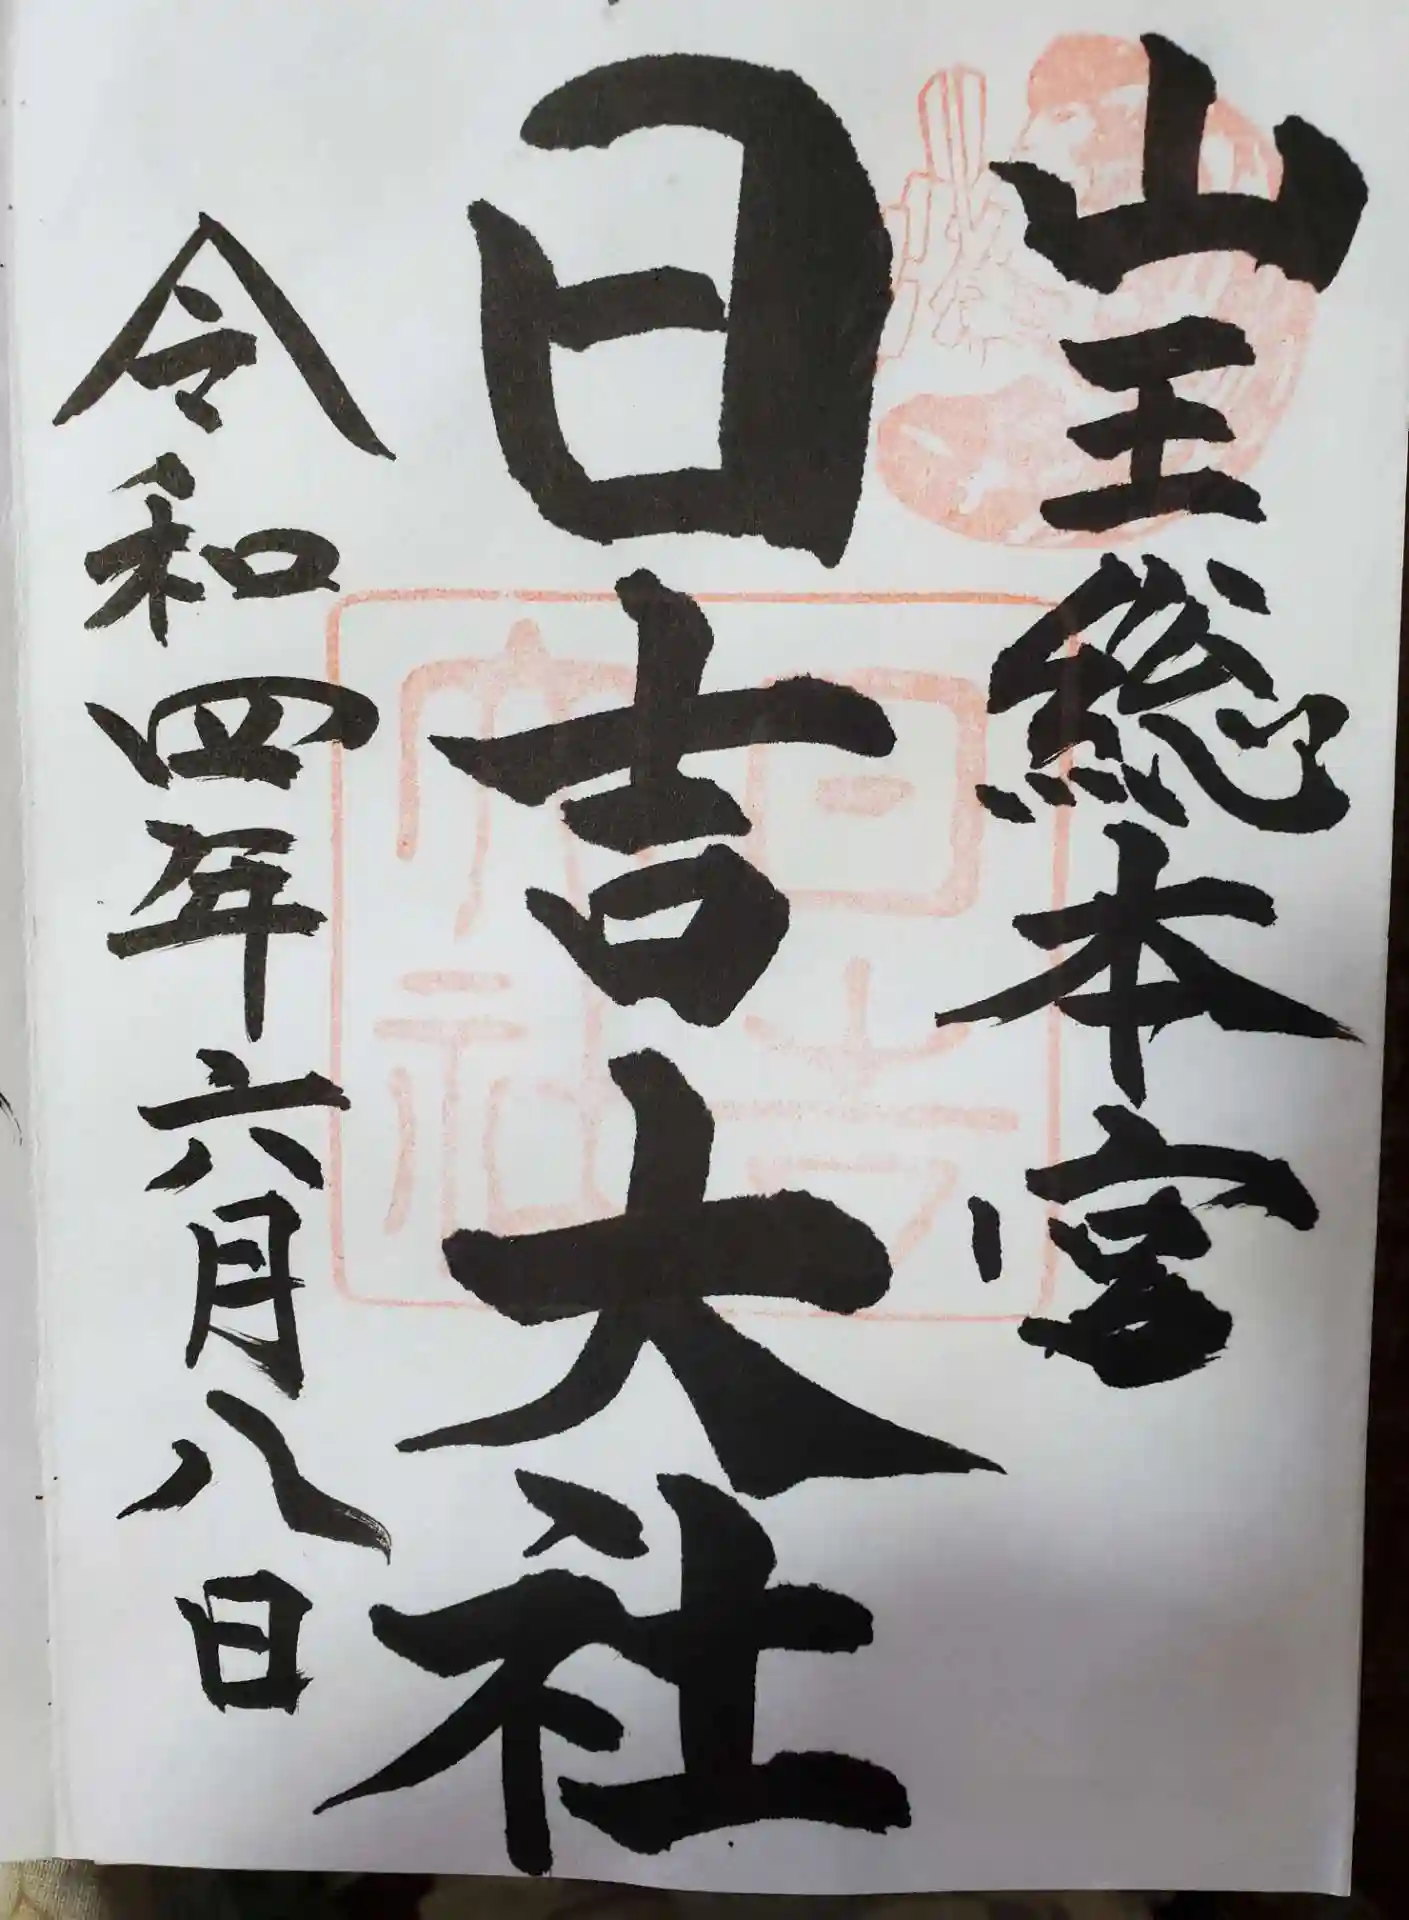 山王総本宮
日吉大社
令和四年六月八日
日吉
大社